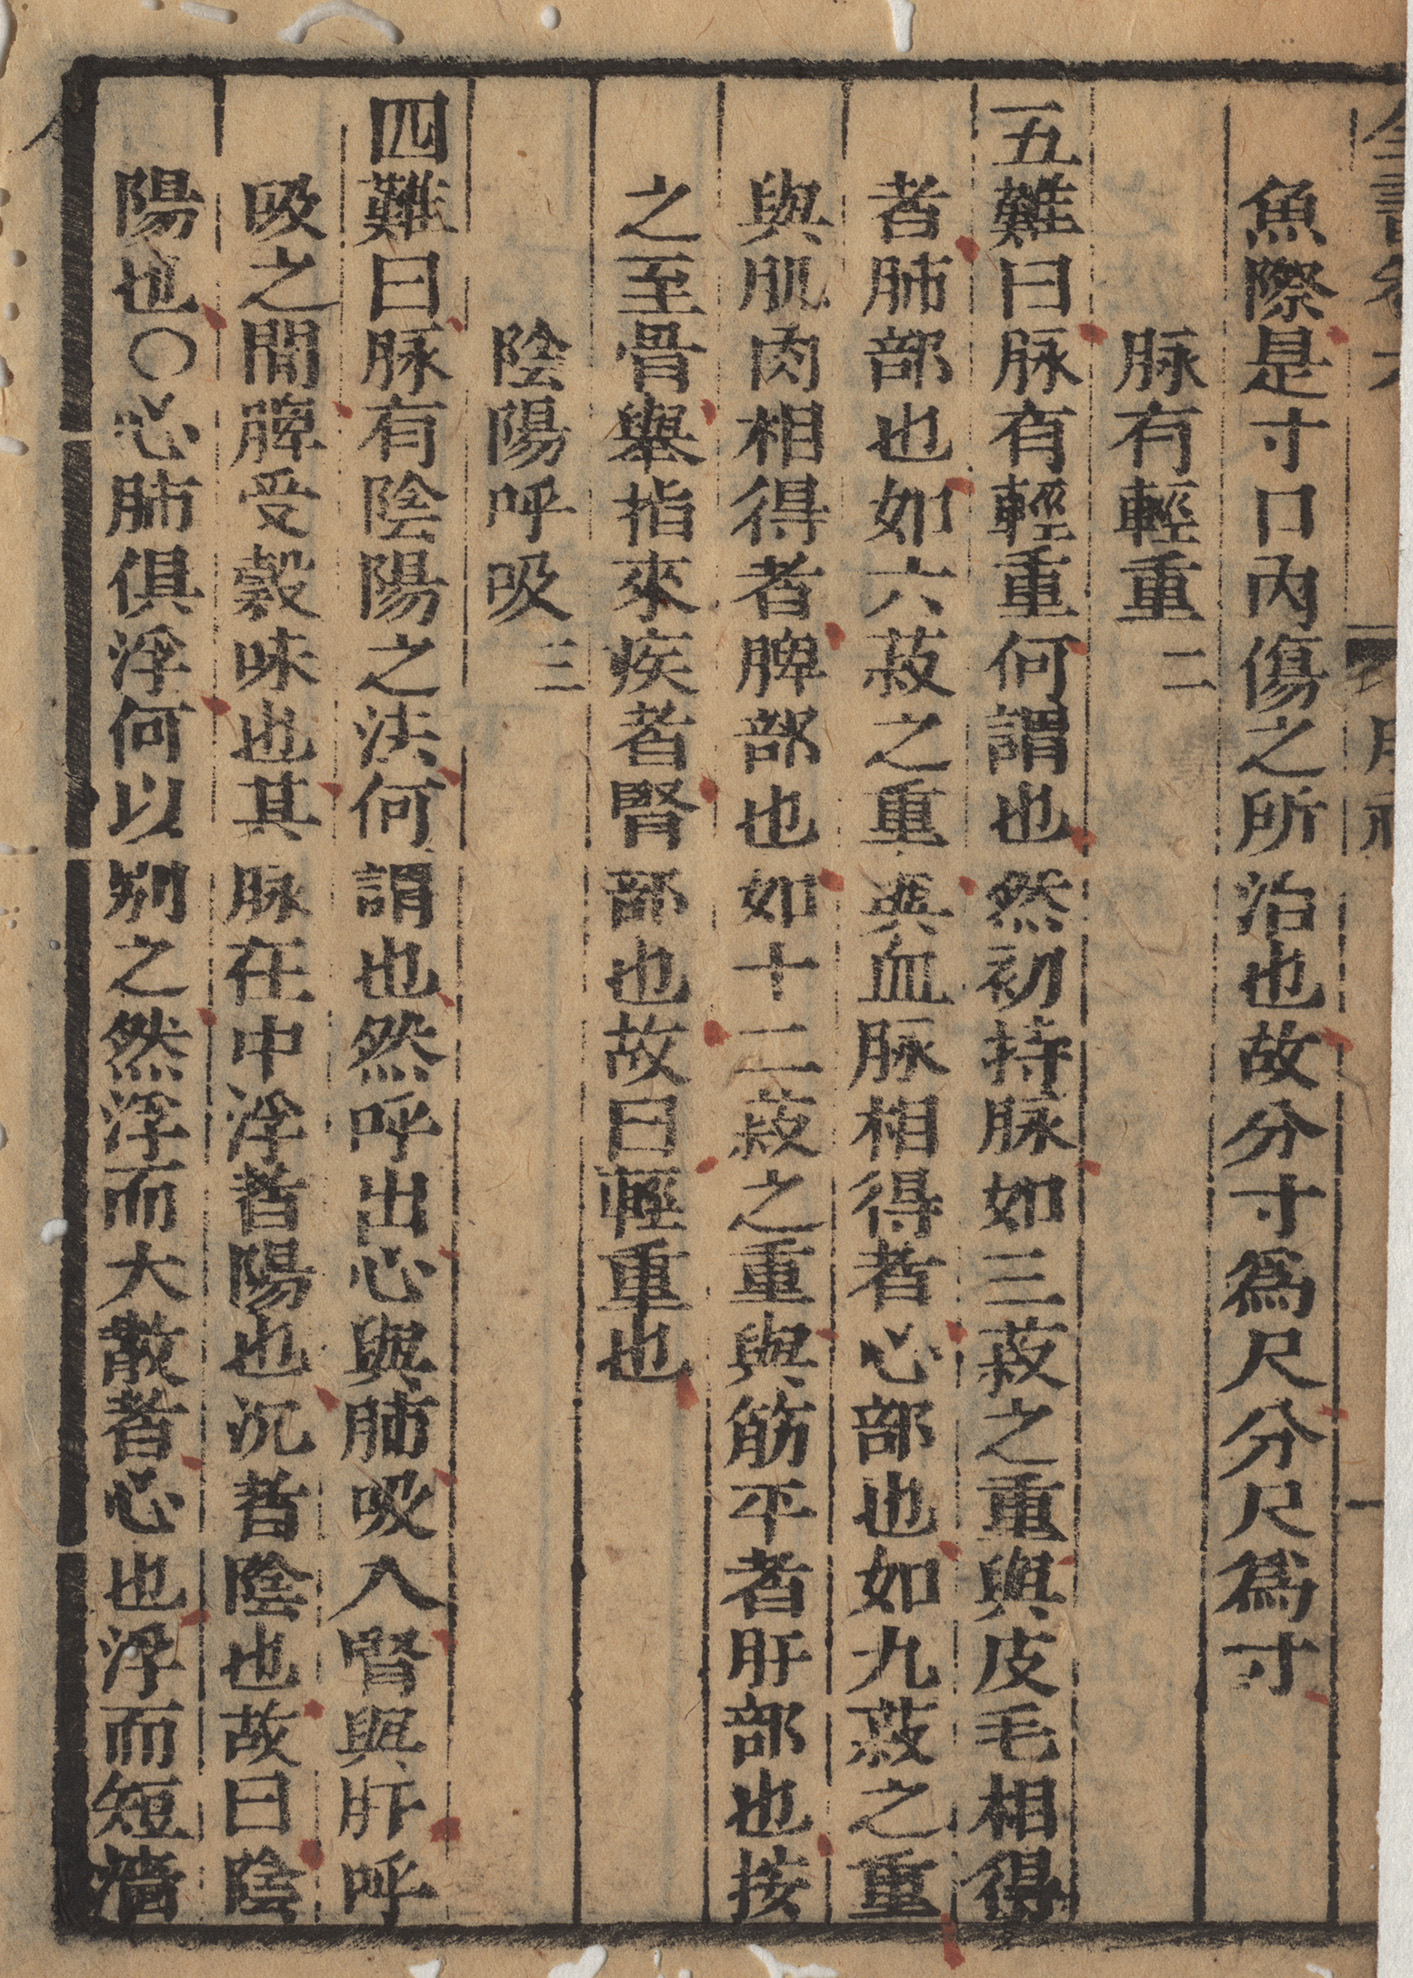 魚際是寸口內傷之所治也故分寸爲尺分尺爲寸
脉有輕重 二
一五難曰脉有輕重何謂也然初持脉如三菽之重與皮毛相得
者肺部也如六菽之重與血脉相得者心部也如九菽之重
與肌肉相得者脾部也如十二菽之重與筋平者肝部也按
之至骨舉指來疾者腎部也故曰輕重也
陰陽呼吸 三
四難曰脉有陰陽之法何謂也然呼出心與肺吸入腎與肝呼
吸之間脾受穀味也其脉在中浮者陽也沉者陰也故曰陰
陽也〇心肺俱浮何以別之然浮而大散者心也浮而短濇